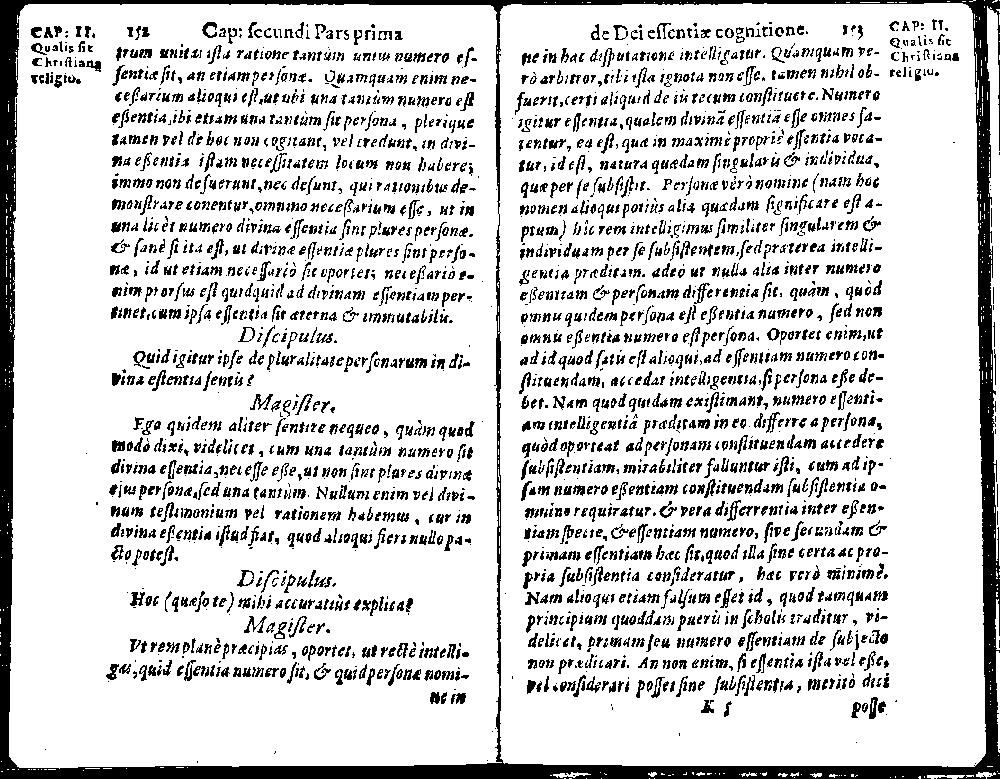 CAP: II.
Qualis sit
Christiana
religio.
152
Cap: secundi Pars prima
trum unitas ista ratione tantùm unius numero es-
sentiæ sit, an etiam personæ. Quamquam enim ne-
cessarium alioqui est, ut ubi una tantùm numero est
essentia, ibi etiam una tantùm sit persona, plerique
tamen vel de hoc non cogitant, vel credunt, in divi-
na essentia istam necessitatem locum non habere;
immo non defuerunt, nec desunt, qui rationibus de-
monstrare conentur, omnino necessarium esse, ut in
una licèt numero divina essentia sint plures personæ.
& sanè si ita est, ut divinæ essentiæ plures sint perso-
næ, id ut etiam necessariò sit oportet; necessariò e-
nim prorsus est quidquid ad divinam essentiam per-
tinet, cum ipsa essentia sit æterna & immutabilis.
Discipulus.
Quid igitur ipse de pluralitate personarum in di-
vina essentia sentis?
Magister.
Ego quidem aliter sentire nequeo, quàm quod
modò dixi, videlicet, cum una tantùm numero sit
divina essentia, necesse esse, ut non sint plures divinæ
ejus personæ, sed una tantùm. Nullum enim vel divi-
num testimonium vel rationem habemus, cur in
divina essentia istud fiat, quod alioqui fieri nullo pa-
cto potest.
Discipulus.
Hoc (quæso te) mihi accuratiùs explica?
Magister.
Ut rem planè præcipias, oportet, ut rectè intelli-
gas, quid essentia numero sit, & quid personæ nomi-
ne in
de Dei essentiæ cognitione.
153
CAP: II.
Qualis sit
Christiana
religio.
ne in hac disputatione intelligatur. Quamquam ve-
rò arbitror, tibi ista ignota non esse. tamen nihil ob-
fuerit, certi aliquid de iis tecum constituere. Numero
igitur essentia, qualem divinã essentiã esse omnes fa-
tentur, ea est, quæ in maximè propriè essentia voca-
tur, id est, natura quædam singularis & individua,
quæ per se subsistit. Personæ verò nomine (nam hoc
nomen alioqui potiùs alia quædam significare est a-
ptum) hîc rem intelligimus similiter singularem &
individuam per se subsistentem, sed præterea intelli-
gentia præditam. adeò ut nulla alia inter numero
essentiam & personam differentia sit, quàm, quòd
omnis quidem persona est essentia numero, sed non
omnis essentia numero est persona. Oportet enim, ut
ad id quod satis est alioqui, ad essentiam numero con-
stituendam, accedat intelligentia, si persona esse de-
bet. Nam quod quidam existimant, numero essenti-
am intelligentiâ præditam in eo differre a persona,
quòd oporteat ad personam constituendam accedere
subsistentiam, mirabiliter falluntur isti, cum ad ip-
sam numero essentiam constituendam subsistentia o-
mnino requiratur. & vera differrentia inter essen-
tiam specie, & essentiam numero, sive secundam &
primam essentiam hæc sit, quod illa sine certa ac pro-
pria subsistentia consideratur, hæc verò minimè.
Nam alioqui etiam falsum esset id, quod tamquam
principium quoddam pueris in scholis traditur, vi-
delicet, primam seu numero essentiam de subjecto
non prædicari. An non enim, si essentia ista vel esse,
vel considerari posset sine subsistentia, meritò dici
K 5
posse